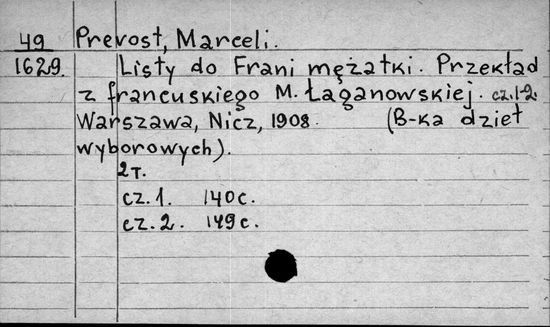 49 Prevost, Marceli.
1629. Listy do Frani mężatki. Przekład
z francuskiego M. Łaganowskiej. cz.1-2.
Warszawa, Nicz, 1908. (B-ka dzieł
wyborowych).
2т.
cz. 1. 140c.
cz. 2. 149c.